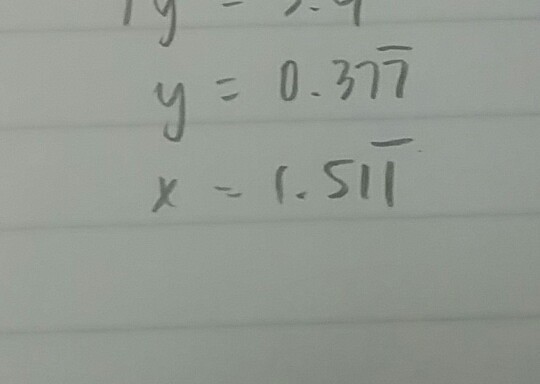 y = 0.377̅
x = 1.511̅